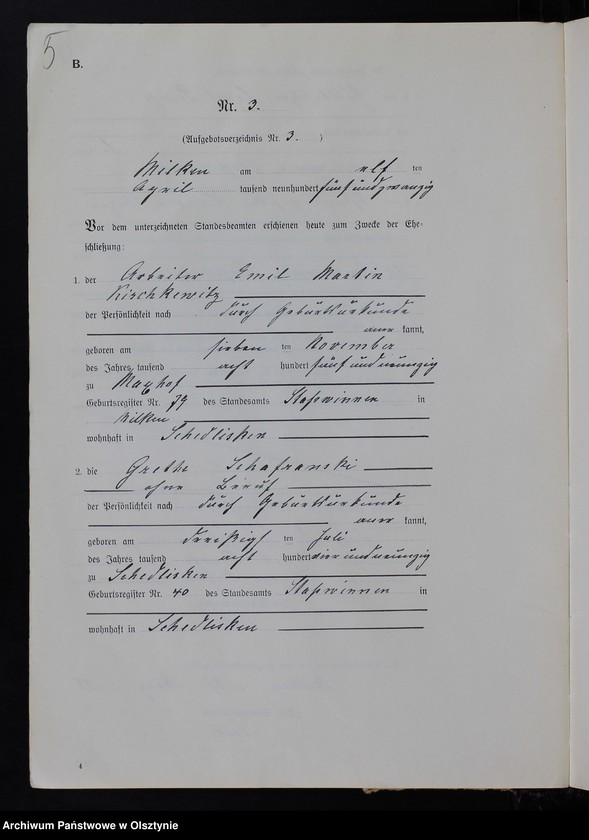 5
B.
Nr. 3.
(Aufgebotsverzeichnis Nr. 3. )
Milken am elf ten
April tausend neunhundert fünf und zwanzig
Vor dem unterzeichneten Standesbeamten erschienen heute zum Zwecke der Ehe-
schließung:
1. der Arbeiter Emil Martin
Kirschkewitz
der Persönlichkeit nach durch Geburtsurkunde
aner kannt,
geboren am sieben ten November
des Jahres tausend acht hundert fünf und neunzig
zu
Geburtsregister Nr. 79 des Standesamts Staßwinnen in
Milken
wohnhaft in Schedlisken
2. die Grethe Schafranski
ohne Beruf
der Persönlichkeit nach durch Geburtsurkunde
aner kannt,
geboren am dreißigs ten Juli
des Jahres tausend acht hundert vier und neunzig
zu Schedlisken
Geburtsregister Nr. 40 des Standesamts Staßwinnen in
wohnhaft in Schedlisken
4
Archiwum Państwowe w Olsztynie